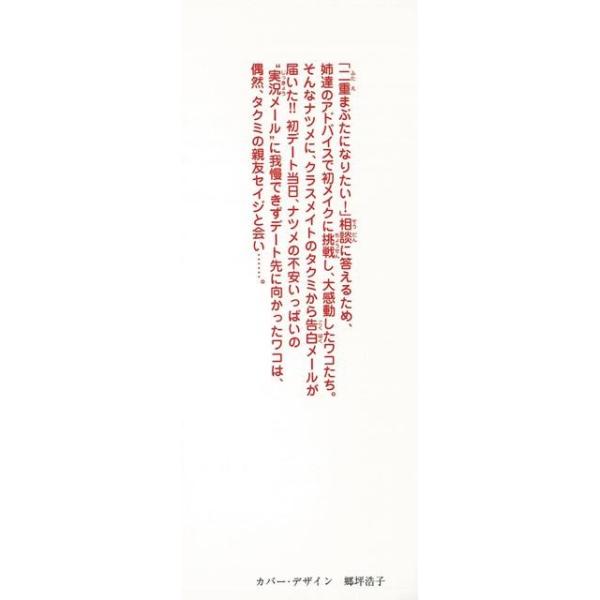 「二重まぶたになりたい！」相談に答えるため、
姉達のアドバイスで初メイクに挑戦し、大感動したワコたち。
そんなナツメに、クラスメイトのタクミから告白メールが
届いた!! 初デート当日、ナツメの不安いっぱいの
“実況メール”に我慢できずデート先に向かったワコは、
偶然、タクミの親友セイジと会い……。
カバー・デザイン　郷坪浩子